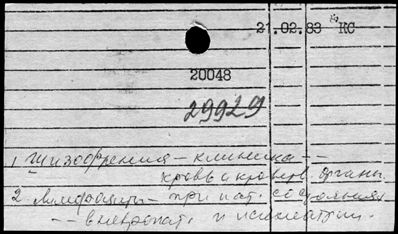 21.02.83 КС
20048
29929
1. Шизофрения – клиника –
кровь и кроветв. органы
2. Лимфоциты – при пат. состояниях
-- в невропат. и психиатрии.